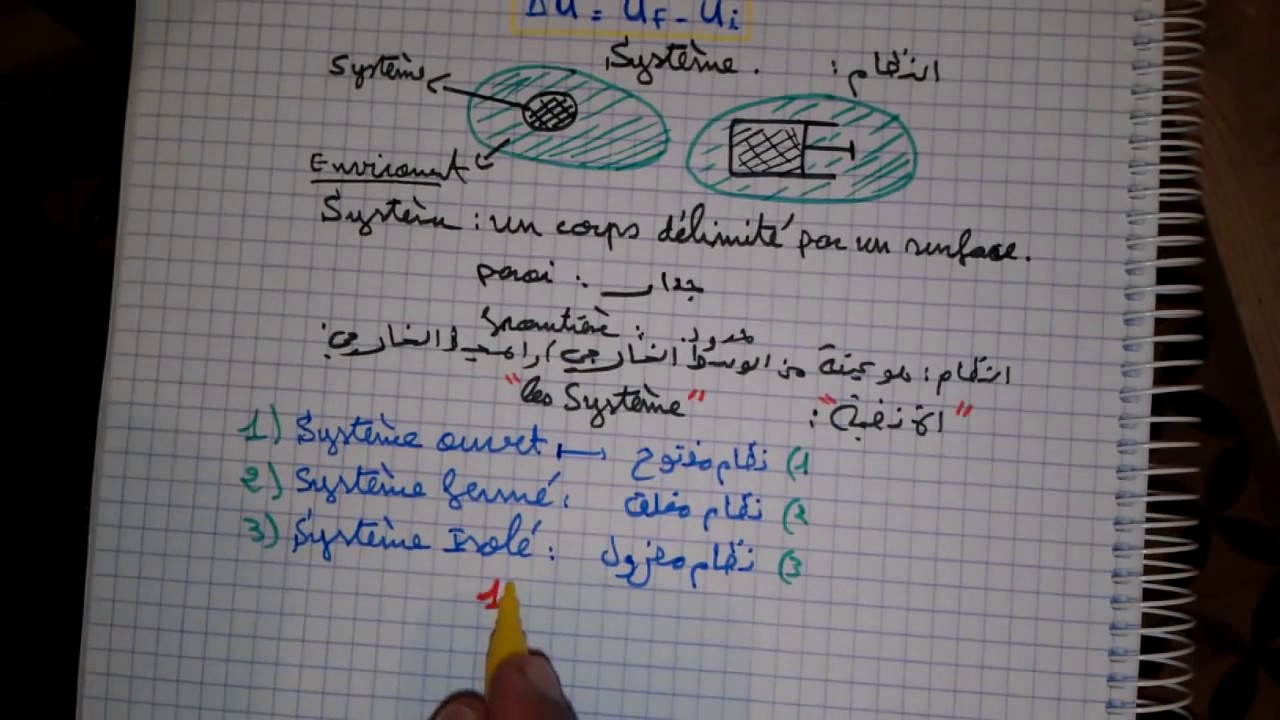 ΔU = Uf - Ui
Système . النظام :
Système
Enviroment
Système : un corps délimité par un surface.
paroi : جدار
Frontière : حدود
النظام : هو عينة من الوسط الخارجي / المحيط الخارجي :
"les Système" "الأنظمة" :
1) Système ouvert ⟼ نظام مفتوح (1
2) Système fermé : نظام مغلق (2
3) Système Isolé : نظام معزول (3
1